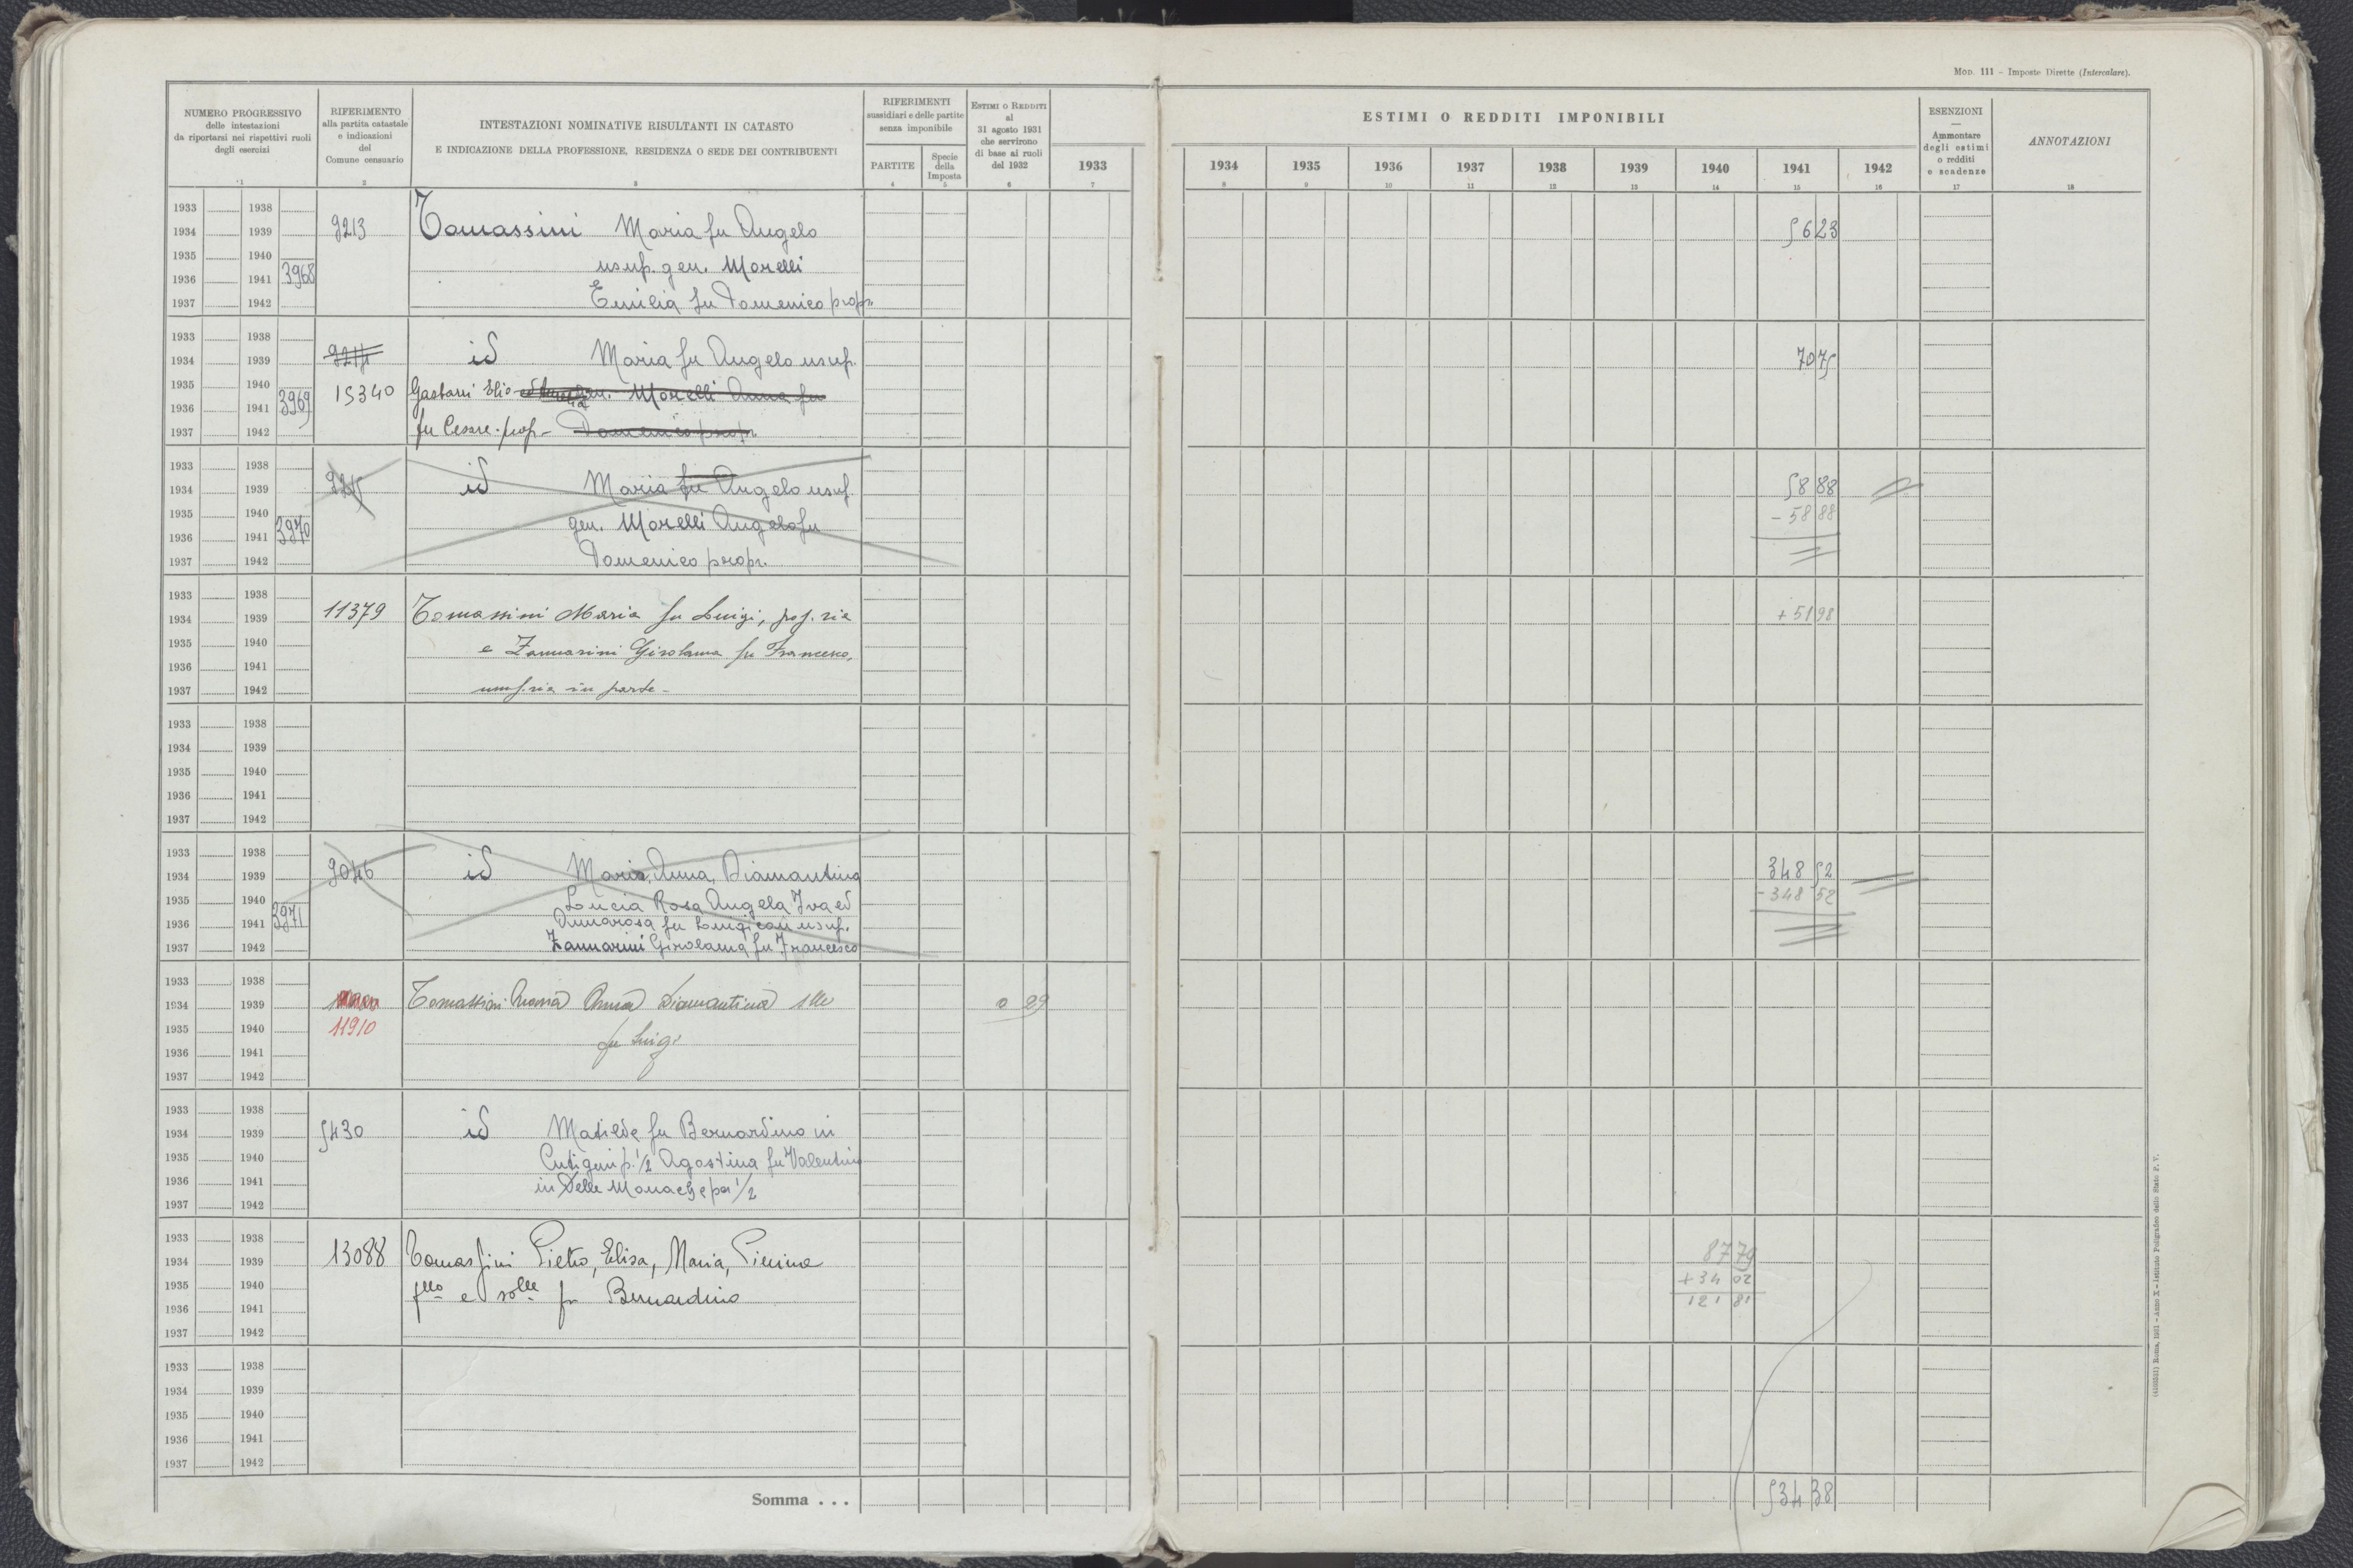 Mod. 111 – Imposte Dirette (Intercalare).
NUMERO PROGRESSIVO
delle intestazioni
da riportarsi nei rispettivi ruoli
degli esercizi
1
RIFERIMENTO
alla partita catastale
e indicazioni
del
Comune censuario
2
INTESTAZIONI NOMINATIVE RISULTANTI IN CATASTO
E INDICAZIONE DELLA PROFESSIONE, RESIDENZA O SEDE DEI CONTRIBUENTI
3
RIFERIMENTI
sussidiari e delle partite
senza imponibile
PARTITE
4
Specie
della
Imposta
5
Estimi o Redditi
al
31 agosto 1931
che servirono
di base ai ruoli
del 1932
6
1933
7
ESTIMI O REDDITI IMPONIBILI
1934 1935 1936 1937 1938 1939 1940 1941 1942
8 9 10 11 12 13 14 15 16
ESENZIONI
—
Ammontare
degli estimi
o redditi
e scadenze
17
ANNOTAZIONI
18
1933 1938
1934 1939 9213 Tomassini Maria fu Angelo 56 23
1935 1940 usuf. gen. Morelli
1936 1941 3968
1937 1942 Emilia fu Domenico propr.
1933 1938
1934 1939 9214 id Maria fu Angelo usuf. 70 75
1935 1940 15340 Gasbarri Elio gen. Morelli Anna fu
1936 1941 3969
1937 1942 fu Cesare prop- Domenico propr.
1933 1938
1934 1939 9215 id Maria fu Angelo usuf. 58 88
1935 1940 gen. Morelli Angelo fu - 58 88
1936 1941 3970
1937 1942 Domenico propr.
1933 1938
1934 1939 11379 Tomassini Maria fu Luigi, prop.ria + 51 98
1935 1940 e Zannarini Girolama fu Francesco,
1936 1941
1937 1942 usuf.ria in parte -
1933 1938
1934 1939
1935 1940
1936 1941
1937 1942
1933 1938
1934 1939 9046 id Maria, Anna, Diamantina 348 52
1935 1940 Lucia Rosa Angela Iva ed - 348 52
1936 1941 3971 Annarosa fu Luigi con usuf.
1937 1942 Zannarini Girolama fu Francesco
1933 1938
1934 1939 Tomassini Anna Diamantina slle 0 29
1935 1940 11910 fu Luigi
1936 1941
1937 1942
1933 1938
1934 1939 5430 id Matilde fu Bernardino in
1935 1940 Cutigni p. 1/2 Agostina fu Valentino
1936 1941 in Delle Monache per 1/2
1937 1942
1933 1938 87 79
1934 1939 13088 Tomassini Pietro, Elisa, Maria, Pierina + 34 02
1935 1940 f.llo e solle fu Bernardino 121 81
1936 1941
1937 1942
1933 1938
1934 1939
1935 1940
1936 1941
1937 1942
Somma . . . 534 38
Roma, 1931 - Anno X - Istituto Poligrafico dello Stato P. V.